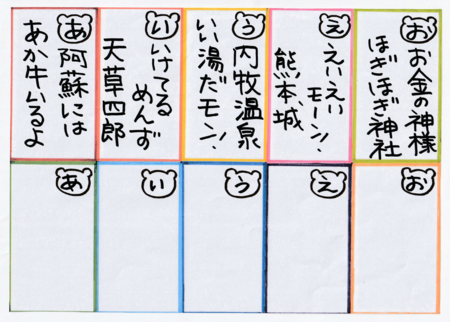 あ
阿蘇には
あか牛いるよ
い
いけてる
めんず
天草四郎
う
内牧温泉
いい湯だモン!
え
えいえい
モーン!
熊本城
お
お金の神様
ほぎほぎ神社
あ
い
う
え
お